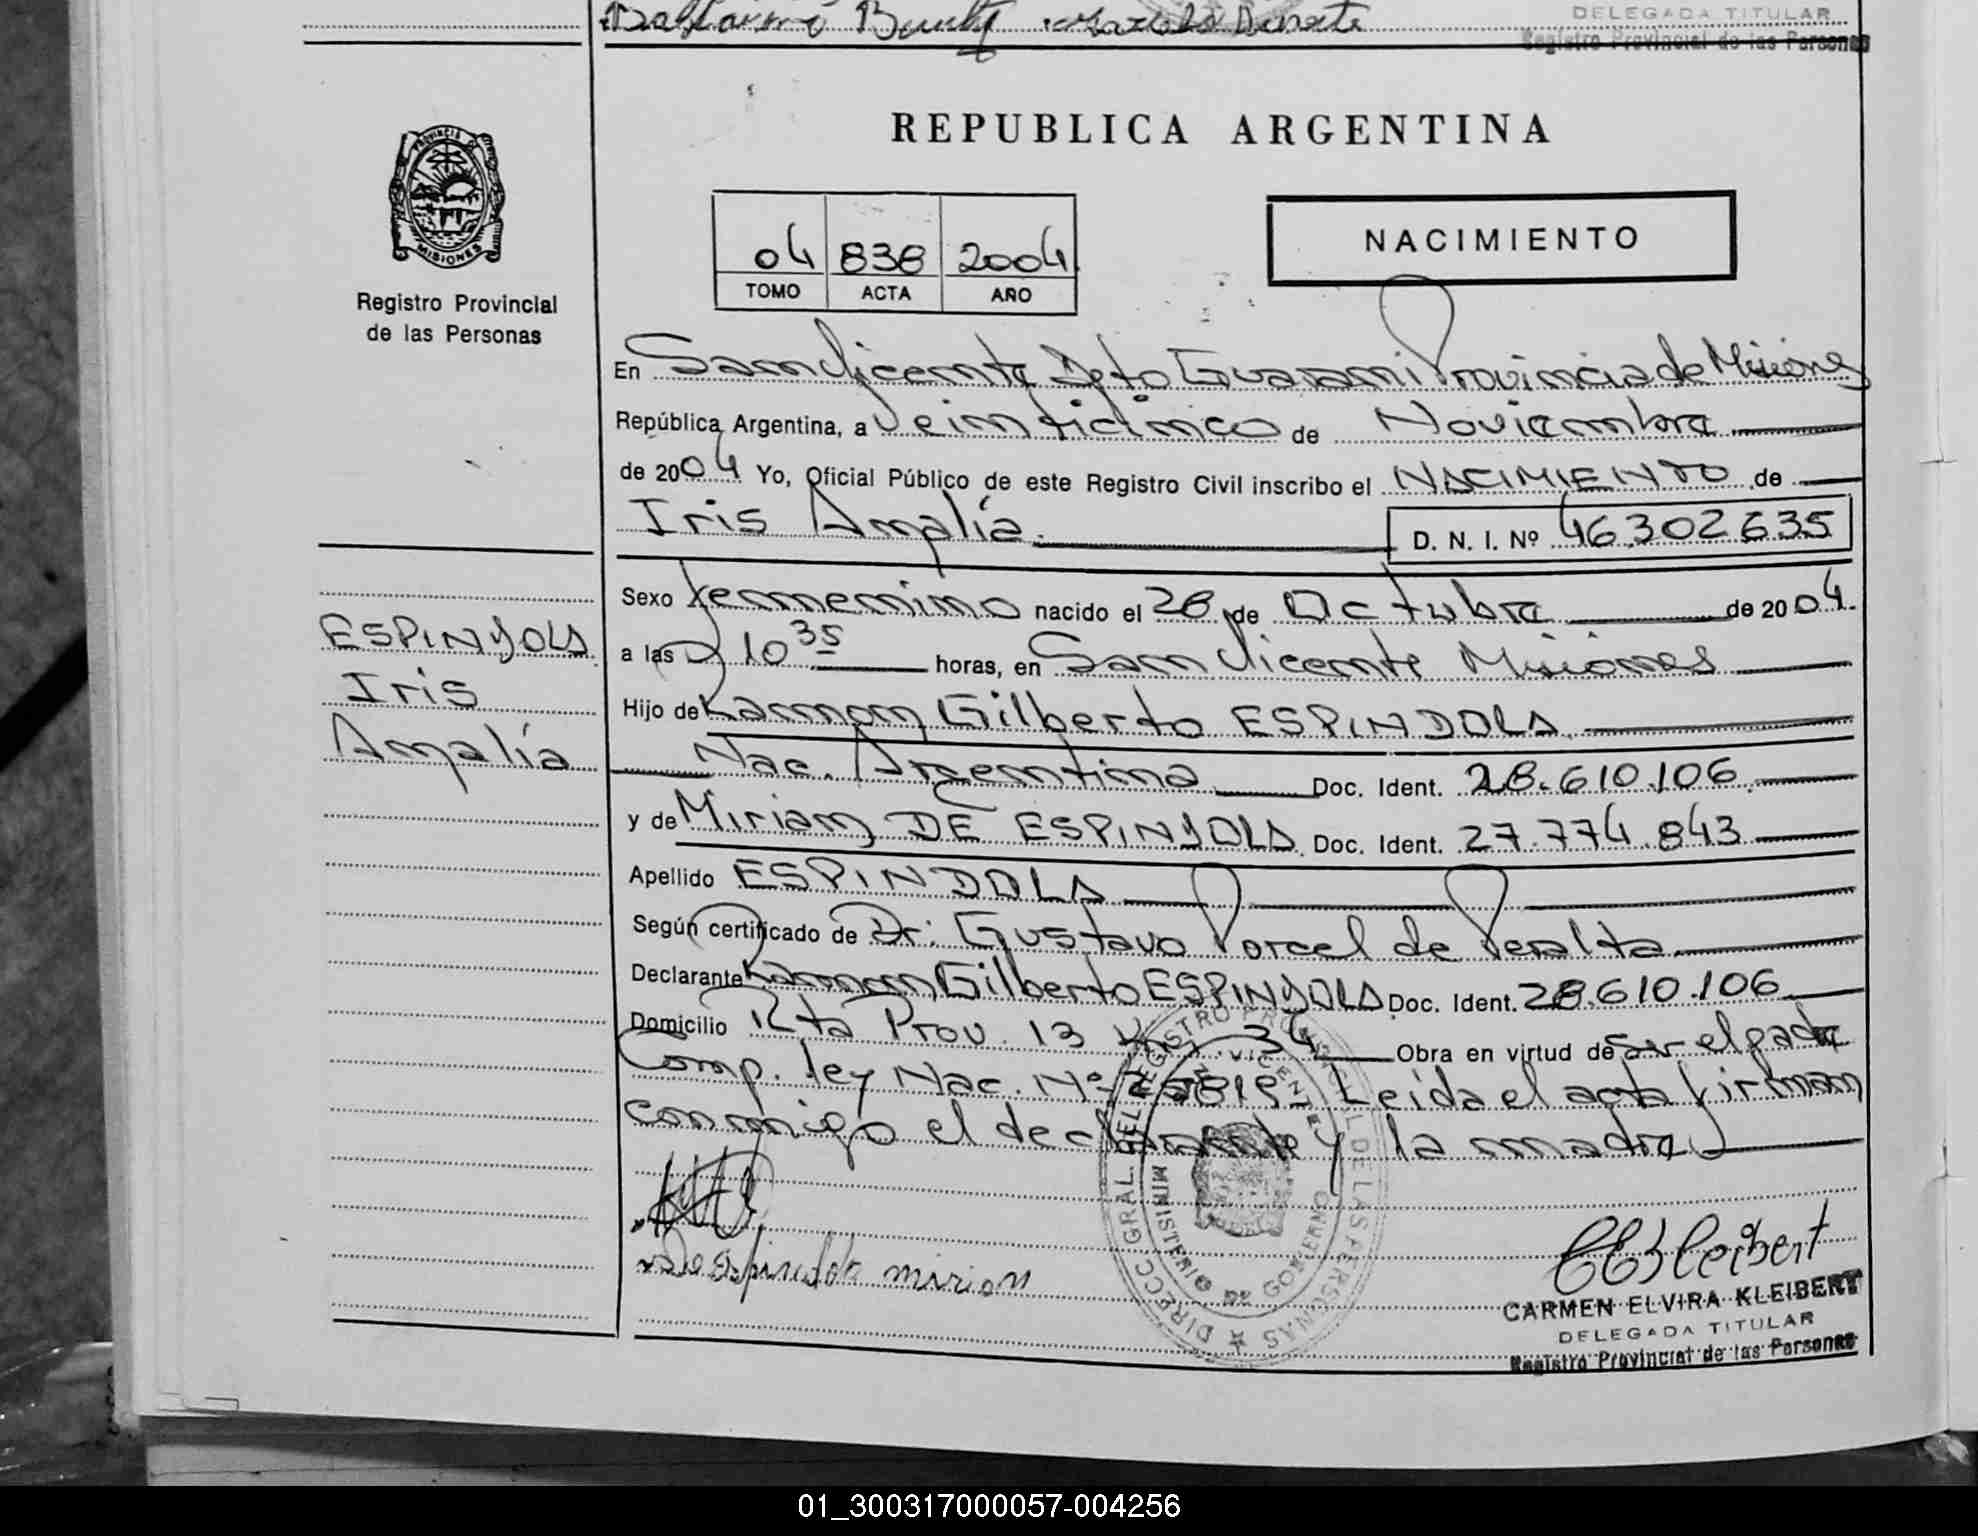 DELEGADA TITULAR
Registro Provincial de las Personas
REPUBLICA ARGENTINA
PROVINCIA DE
MISIONES
Registro Provincial
de las Personas
04 838 2004
TOMO ACTA AÑO
NACIMIENTO
En San Vicente Dpto Guarani Provincia de Misiones
República Argentina, a Veinticinco de Noviembre
de 2004 Yo, Oficial Público de este Registro Civil inscribo el NACIMIENTO de
Iris Amalía. D. N. I. Nº 46.302635
ESPINDOLA
Iris
Amalía
Sexo femenino nacido el 28 de Octubre de 2004.
a las 10 35 horas, en San Vicente Misiones
Hijo de Ramon Gilberto ESPINDOLA.
Nac. Argentina Doc. Ident. 28.610.106
y de Miriam DE ESPINDOLA. Doc. Ident. 27.774.843
Apellido ESPINDOLA
Según certificado de Dr: Gustavo Porcel de Peralta
Declarante Ramon Gilberto ESPINDOLA Doc. Ident. 28.610.106
Domicilio Rta Prov. 13 Km. 34 Obra en virtud de ser el padre
Comp. ley Nac. Nº 25819- Leida el acta firman
conmigo el declarante y la madre
De Espindola miriam
DIRECC GRAL. DEL REGISTRO PROVINCIAL DE LAS PERSONAS
MINISTERIO DE GOBIERNO
CARMEN ELVIRA KLEIBERT
DELEGADA TITULAR
Registro Provincial de las Personas
01_300317000057-004256